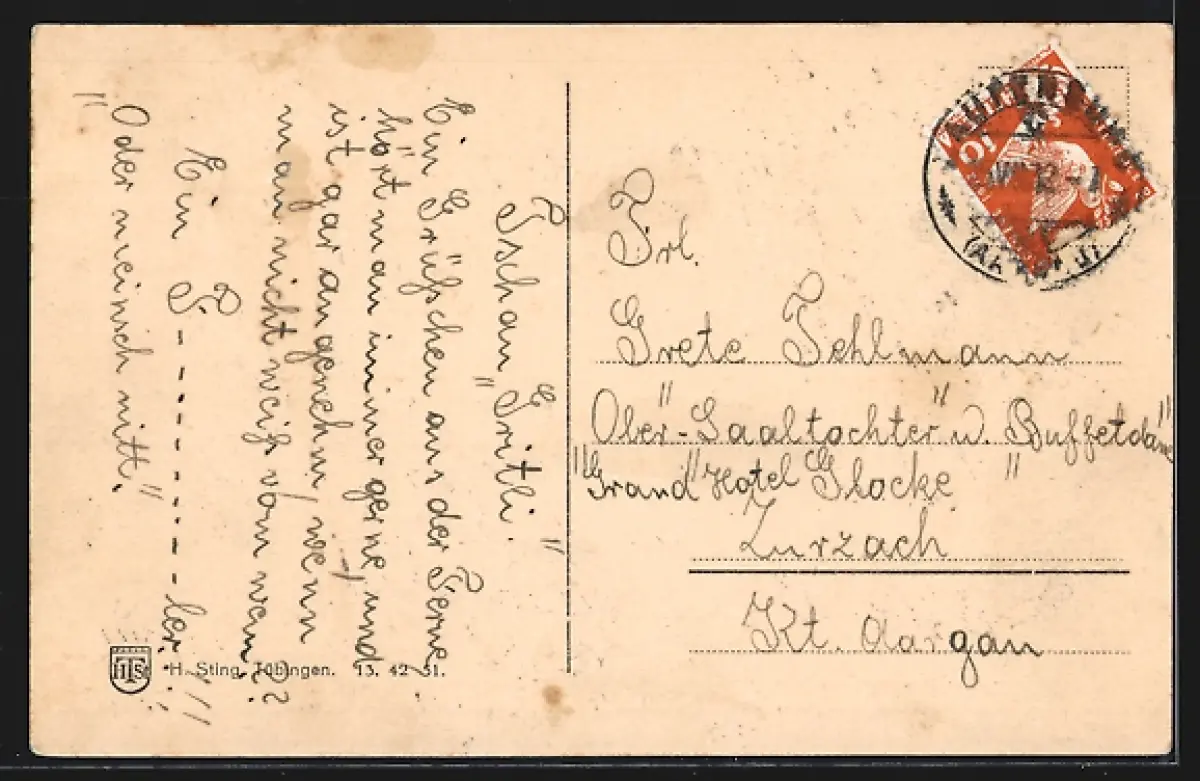 Tschau "Gritli."
Ein Grüßchen aus der Ferne
hört man immer gerne, und
ist gar angenehm, wenn
man nicht weiß vom wem??
Ein F - - - - - - - - - ler!!!!
"Oder meinsch nitt."
Frl.
Grete Fehlmann
"Ober-Saaltochter" u. Buffetdame"
"Grand" Hotel "Glocke"
Zurzach
Kt. Aargau
H. Sting, Tübingen. 13. 42 31.
HTSt
10